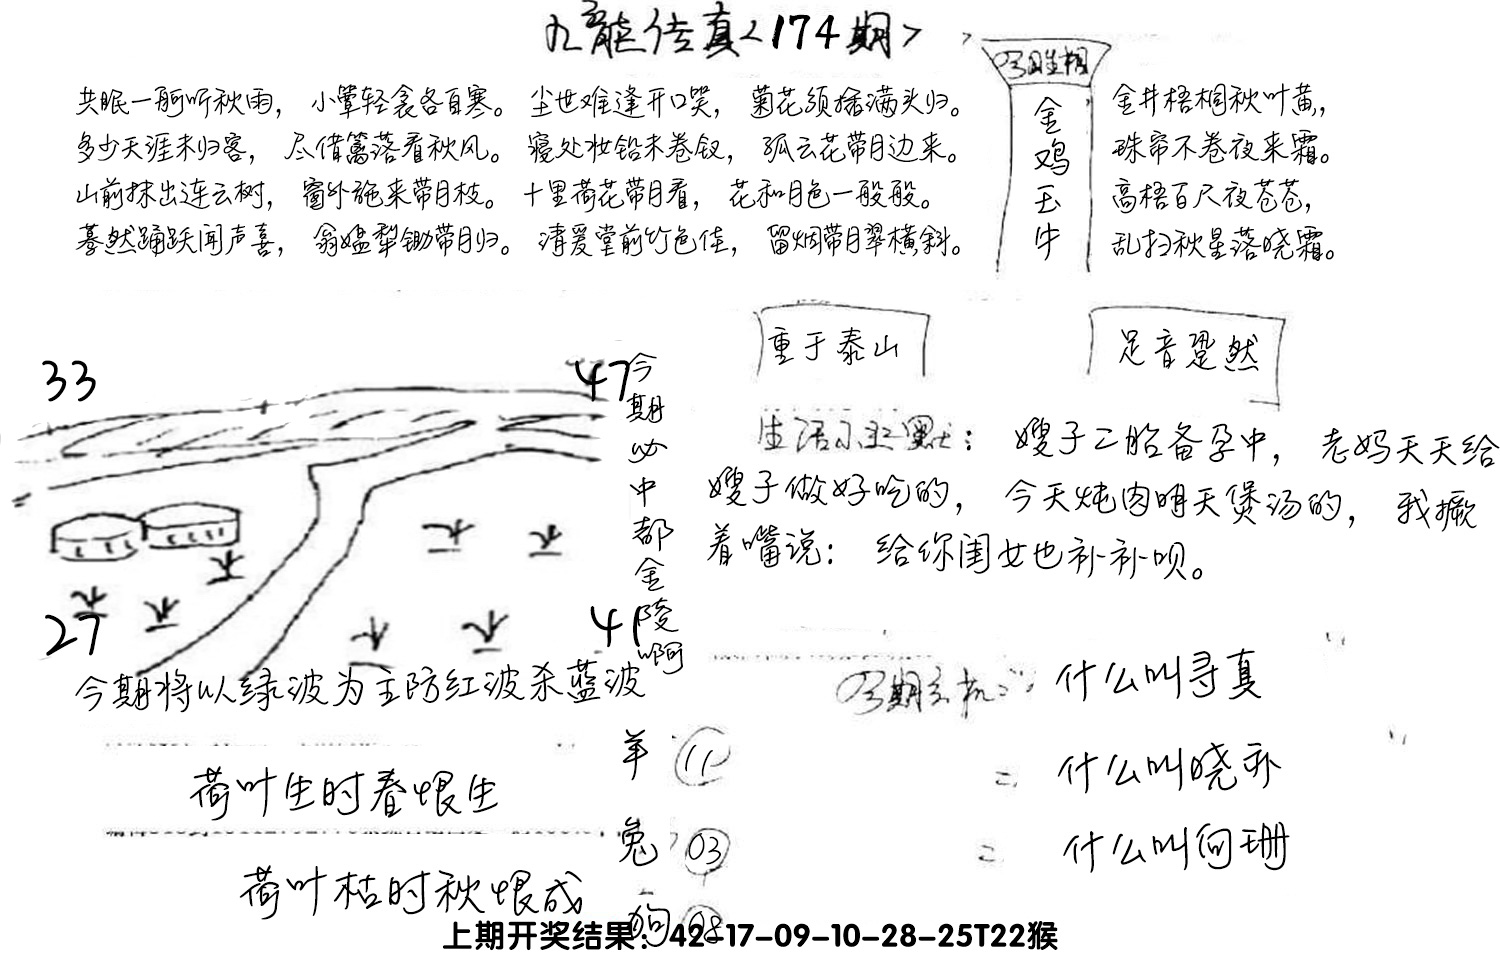 九龍传真<174期>
共眠一舸听秋雨，小簟轻衾各自寒。尘世难逢开口笑，菊花须插满头归。
多少天涯未归客，尽借篱落看秋风。寝处妆铅未卷钗，孤云花带月边来。
山前抹出连云树，窗外施来带月枝。十里荷花带月看，花和月色一般般。
蓦然踊跃闻声喜，翁媪犁锄带月归。清爱堂前竹色佳，留烟带月翠横斜。
金鸡玉牛
金井梧桐秋叶黄，
珠帘不卷夜来霜。
高梧百尺夜苍苍，
乱扫秋星落晓霜。
重于泰山
足音跫然
33
47
27
41
今期必中都金陵啊
生活小幽默：嫂子二胎备孕中，老妈天天给
嫂子做好吃的，今天炖肉明天煲汤的，我撅
着嘴说：给你闺女也补补呗。
今期将以绿波为主防红波杀蓝波
今期玄机：什么叫寻真
= 什么叫晓示
= 什么叫向珊
荷叶生时春恨生
荷叶枯时秋恨成
羊 11
兔 03
狗 08
上期开奖结果：42-17-09-10-28-25T22猴